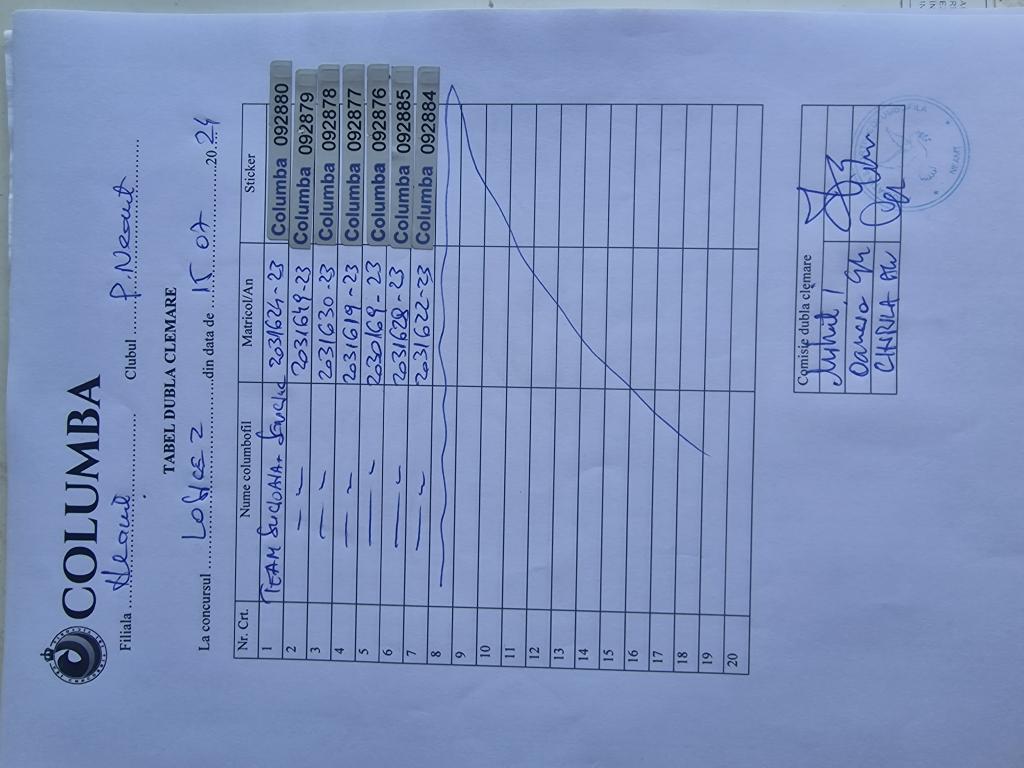 COLUMBA
Filiala Neamț Clubul P. Neamț
TABEL DUBLA CLEMARE
La concursul din data de 15 07 2024
Nr. Crt. Nume columbofil Matricol/An Sticker
1 TEAM 2031624-23 Columba 092880
2 — 〃 — 2031649-23 Columba 092879
3 — 〃 2031630-23 Columba 092878
4 — 〃 2031619-23 Columba 092877
5 — 〃 2030169-23 Columba 092876
6 — 〃 2031628-23 Columba 092885
7 — 〃 2031622-23 Columba 092884
8
9
10
11
12
13
14
15
16
17
18
19
20
Comisie dubla clemare
NEAMT